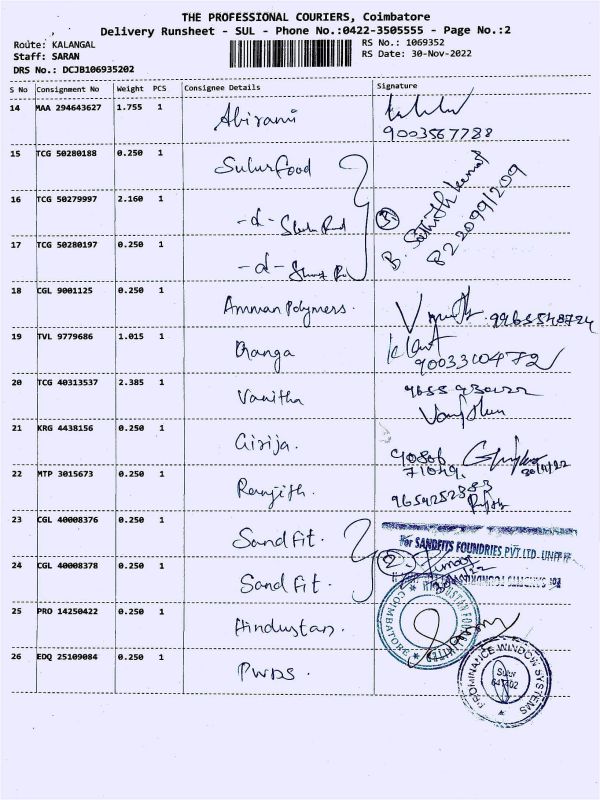 THE PROFESSIONAL COURIERS, Coimbatore
Delivery Runsheet - SUL - Phone No.:0422-3505555 - Page No.:2
Route: KALANGAL
RS No.: 1069352
Staff: SARAN
RS Date: 30-Nov-2022
DRS No.: DCJB106935202
S No Consignment No Weight PCS Consignee Details Signature
14 MAA 294643627 1.755 1 Abirami
9003567788
15 TCG 50280188 0.250 1 Sulur Food
16 TCG 50279997 2.160 1 -d- (3)
B. Sathith kumar
8220991209
17 TCG 50280197 0.250 1 -d-
18 CGL 9001125 0.250 1 Amman Polymers. 9965548724
19 TVL 9779686 1.015 1 Ganga
9003310472
20 TCG 40313537 2.385 1 Vanitha
21 KRG 4438156 0.250 1 Girija.
90806
71049.
30/11/22
22 MTP 3015673 0.250 1 Ranjith.
9654252383
23 CGL 40008376 0.250 1 Sandfit.
For SANDFITS FOUNDRIES PVT.LTD. UNIT II
24 CGL 40008378 0.250 1 Sand fit. (2)
25 PRO 14250422 0.250 1 Hindustan.
COIMBATORE
26 EDQ 25109084 0.250 1 PWDS.
PROMINANCE WINDOW SYSTEMS
Sulur
641402